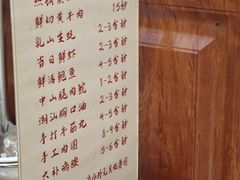 15秒
鲜切黄牛肉 2-3分钟
乳山生蚝 2-3分钟
百日鲜虾 2-3分钟
鲜活鲍鱼 2-3分钟
中山脆肉鲩 4-5分钟
潮汕胸口油 4-5分钟
手打牛筋丸 8-9分钟
手工肉圆 5-6分钟